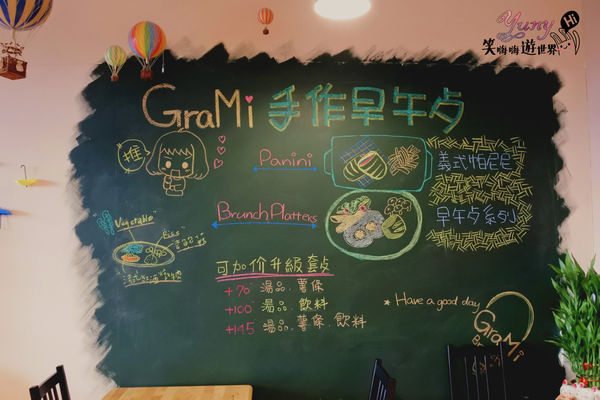 Yuny
Hi
笑嗨嗨遊世界
GraMi 手作早午夕
推
Panini
義式怕尼尼
Brunch Platters
早午夕系列
Vegetable
可加价升級套夕
+70 湯品.薯條
+100 湯品.飲料
+145 湯品.薯條.飲料
* Have a good day
GraMi